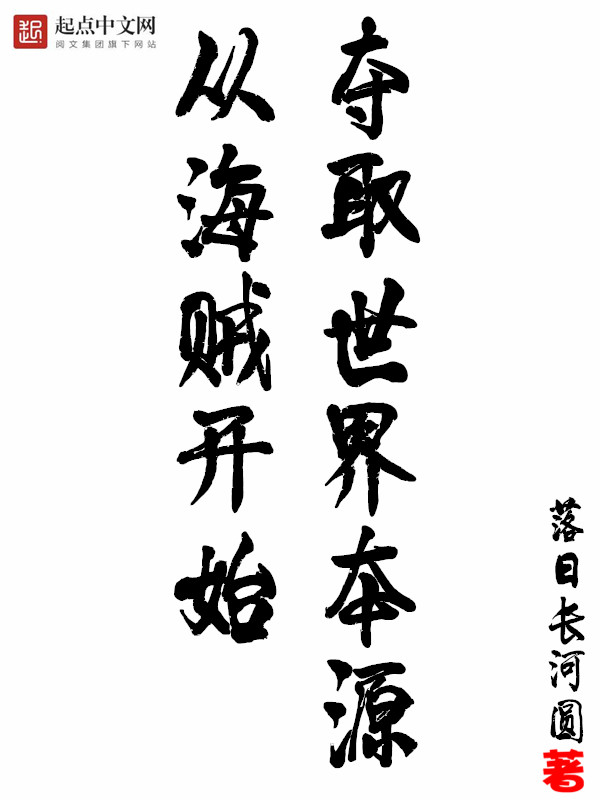 起点中文网
阅文集团旗下网站
夺取世界本源
从海贼开始
落日长河圆
著